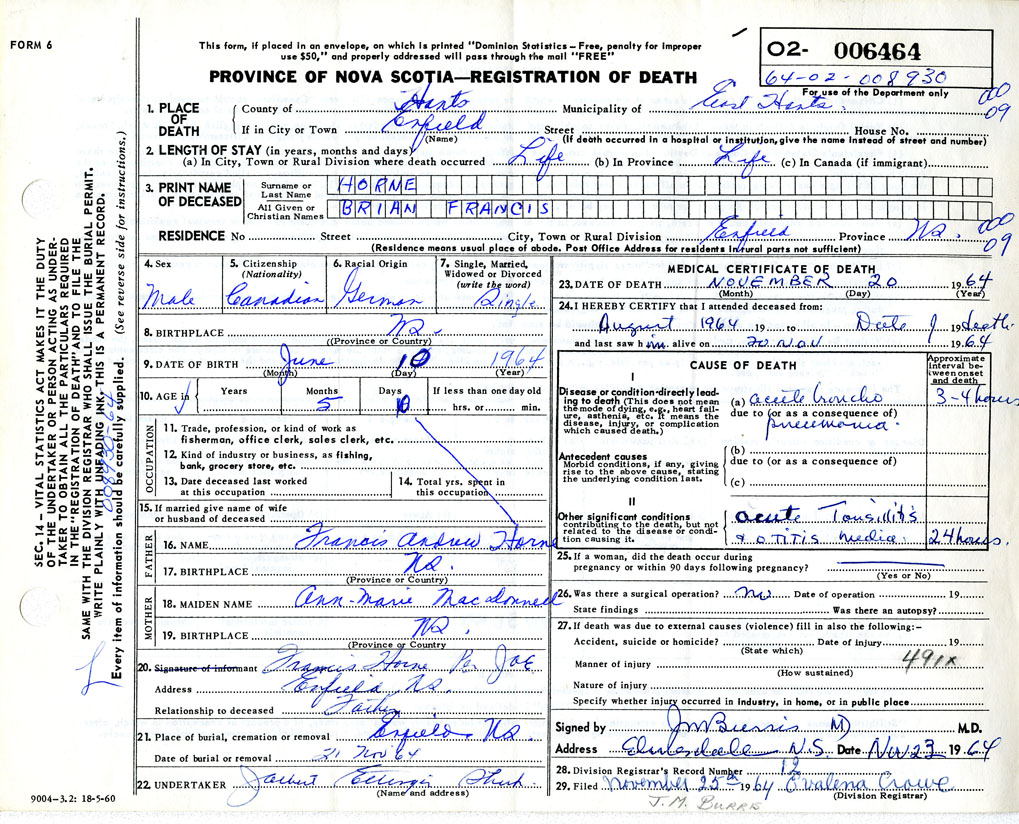 FORM 6
This form, if placed in an envelope, on which is printed "Dominion Statistics – Free, penalty for improper
use $50," and properly addressed will pass through the mail "FREE"
PROVINCE OF NOVA SCOTIA—REGISTRATION OF DEATH
02- 006464
64-02-008930
For use of the Department only
00
09
1. PLACE OF DEATH
County of Hants Municipality of East Hants.
If in City or Town Enfield Street House No.
(Name) (If death occurred in a hospital or institution, give the name instead of street and number)
2. LENGTH OF STAY (in years, months and days)
(a) In City, Town or Rural Division where death occurred Life (b) In Province Life (c) In Canada (if immigrant)
3. PRINT NAME OF DECEASED
Surname or Last Name HORNE
All Given or Christian Names BRIAN FRANCIS
RESIDENCE No Street City, Town or Rural Division Enfield Province NS.
00
09
(Residence means usual place of abode. Post Office Address for residents in rural parts not sufficient)
4. Sex
Male
5. Citizenship
(Nationality)
Canadian
6. Racial Origin
German
7. Single, Married,
Widowed or Divorced
(write the word)
Single
8. BIRTHPLACE NS.
(Province or Country)
9. DATE OF BIRTH June 10 1964
(Month) (Day) (Year)
10. AGE in
Years
Months
5
Days
10
If less than one day old
hrs. or min.
OCCUPATION
11. Trade, profession, or kind of work as
fisherman, office clerk, sales clerk, etc.
12. Kind of industry or business, as fishing,
bank, grocery store, etc.
13. Date deceased last worked
at this occupation
14. Total yrs. spent in
this occupation
15. If married give name of wife
or husband of deceased
FATHER
16. NAME Francis Andrew Horne
17. BIRTHPLACE NS.
(Province or Country)
MOTHER
18. MAIDEN NAME Ann-Marie MacDonnell
19. BIRTHPLACE NS.
(Province or Country
20. Signature of informant Francis Horne Per JOE
Address Enfield NS.
Relationship to deceased Father
21. Place of burial, cremation or removal Enfield NS
Date of burial or removal 21 Nov 64
22. UNDERTAKER
(Name and address)
9004-3.2: 18-5-60
MEDICAL CERTIFICATE OF DEATH
23. DATE OF DEATH NOVEMBER 20 1964
(Month) (Day) (Year)
24. I HEREBY CERTIFY that I attended deceased from:
August 1964 19 to Date of 19 death
and last saw him alive on 20 NOV 1964
CAUSE OF DEATH
Approximate
interval be-
tween onset
and death
I
Disease or condition directly lead-
ing to death (This does not mean
the mode of dying, e.g., heart fail-
ure, asthenia, etc. It means the
disease, injury, or complication
which caused death.)
(a) acute broncho 3-4 hours
due to (or as a consequence of)
pneumonia.
Antecedent causes
Morbid conditions, if any, giving
rise to the above cause, stating
the underlying condition last.
(b)
due to (or as a consequence of)
(c)
II
Other significant conditions
contributing to the death, but not
related to the disease or condi-
tion causing it.
acute Tonsillitis
& OTITIS Media. 24 hours.
25. If a woman, did the death occur during
pregnancy or within 90 days following pregnancy?
(Yes or No)
26. Was there a surgical operation? no Date of operation 19
State findings Was there an autopsy?
27. If death was due to external causes (violence) fill in also the following:-
Accident, suicide or homicide? Date of injury 19
(State which)
491x
Manner of injury
(How sustained)
Nature of injury
Specify whether injury occurred in industry, in home, or in public place
Signed by JMBurris MD M.D.
Address Elmsdale N.S. Date Nov 23 1964
28. Division Registrar's Record Number 12
29. Filed November 25th 1964 Evalena Crowe
(Division Registrar)
J.M. BURRIS
SEC. 14 – VITAL STATISTICS ACT MAKES IT THE DUTY
OF THE UNDERTAKER OR PERSON ACTING AS UNDER-
TAKER TO OBTAIN ALL THE PARTICULARS REQUIRED
IN THE "REGISTRATION OF DEATH" AND TO FILE THE
SAME WITH THE DIVISION REGISTRAR WHO SHALL ISSUE THE BURIAL PERMIT.
WRITE PLAINLY WITH UNFADING INK–THIS IS A PERMANENT RECORD.
008930-64
Every item of information should be carefully supplied. (See reverse side for instructions.)